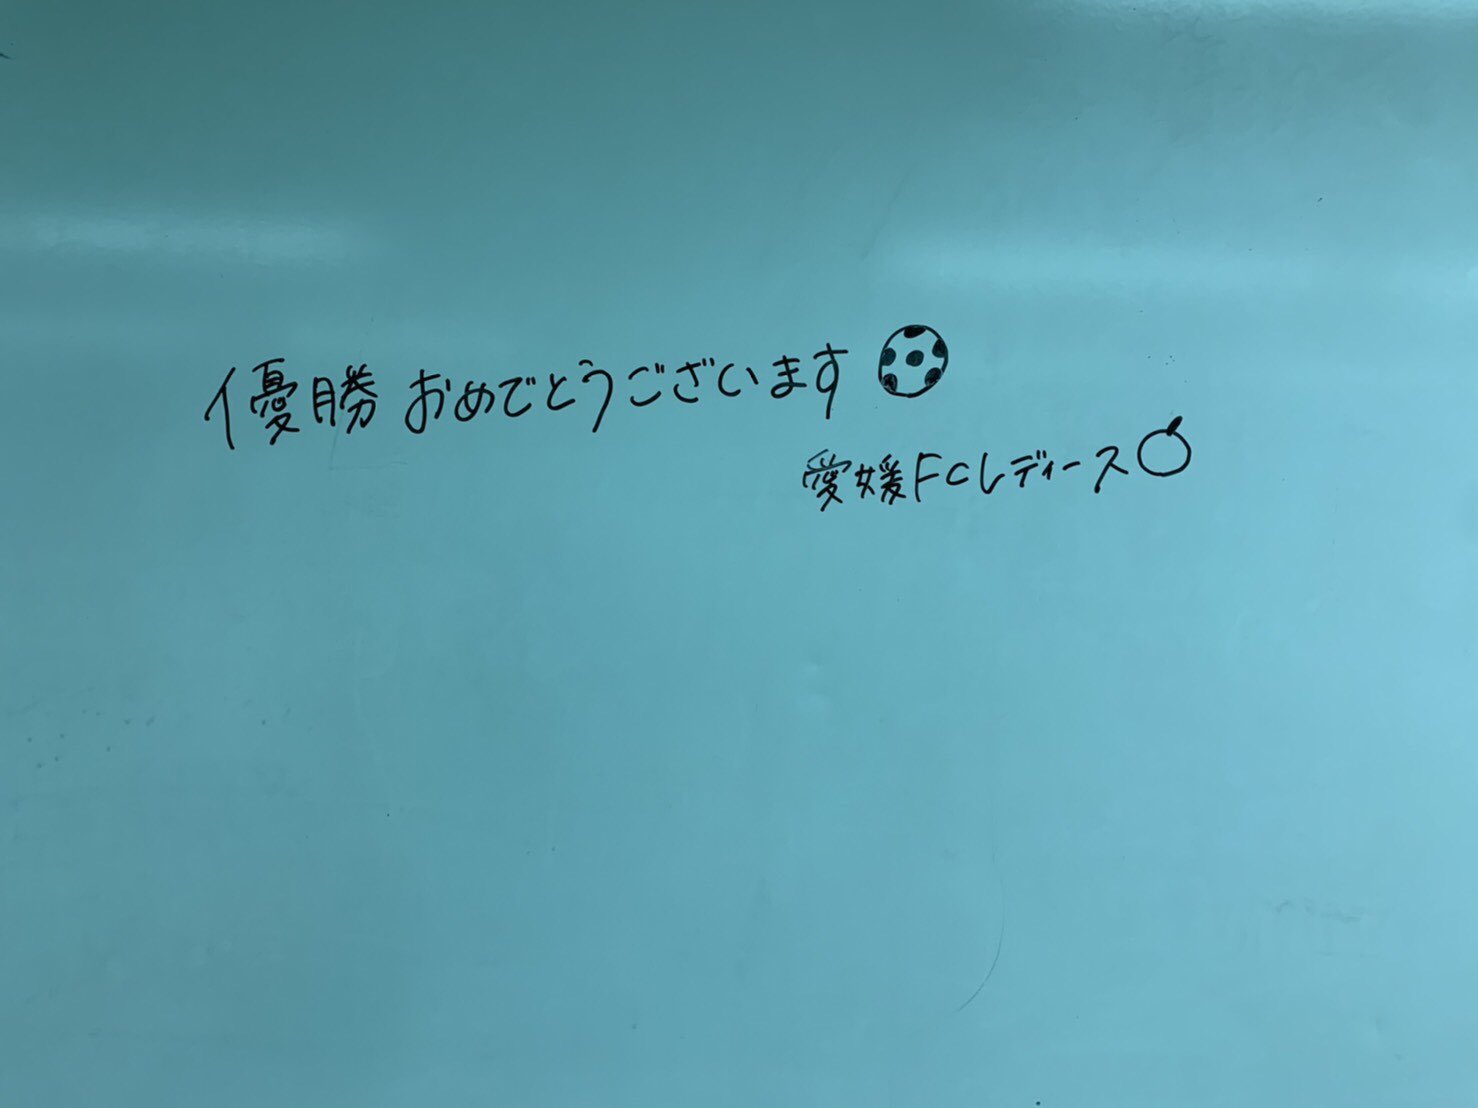 優勝おめでとうございます
愛媛FCレディース